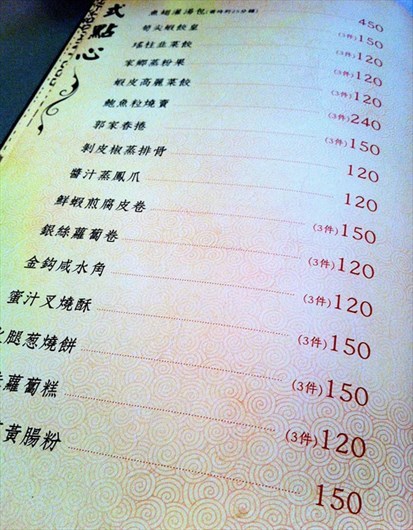 式點心
魚翅灌湯包(需時約25分鐘) 450
筍尖蝦餃皇 (3件)150
瑤柱韭菜餃 (3件)120
家鄉蒸粉果 (3件)120
蝦皮高麗菜餃 (3件)120
鮑魚粒燒賣 (3件)240
郭家春捲 (3件)150
剝皮椒蒸排骨 120
醬汁蒸鳳爪 120
鮮蝦煎腐皮卷 (3件)150
銀絲蘿蔔卷 (3件)120
金鈎咸水角 (3件)120
蜜汁叉燒酥 (3件)150
腿葱燒餅 (3件)150
蘿蔔糕 (3件)120
黃腸粉 150